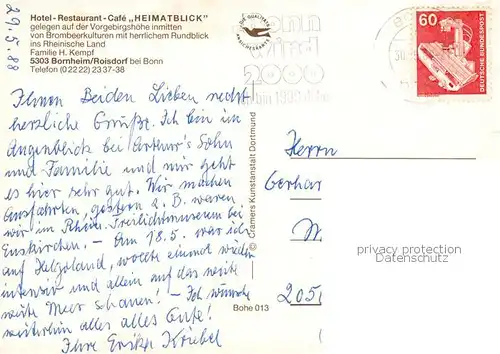 29.5.88
Hotel-Restaurant-Café „HEIMATBLICK"
gelegen auf der Vorgebirgshöhe inmitten
von Brombeerkulturen mit herrlichem Rundblick
ins Rheinische Land
Familie H. Kempf
5303 Bornheim/Roisdorf bei Bonn
Telefon (02222) 2337-38
Ihnen Beiden Lieben recht
herzliche Grüße. Ich bin im
Augenblick bei Arthur's Sohn
und Familie und mir geht
es hier sehr gut. Wir machen
Ausfahrten, gestern z. B. waren
wir im Rhein. Freilichtmuseum bei
Euskirchen. – Am 18.5. war ich
auf Helgoland, wollte einmal wieder
intensiv und allein auf das weite
weite Meer schauen! – Ich wünsche
weiterhin alles alles Gute!
Ihre Kriebel
© Cramers Kunstanstalt Dortmund
Bohe 013
bonn
wird
2000
60
DEUTSCHE BUNDESPOST
Herrn
Gerhar
205
privacy protection
ansichtskarten-center.de